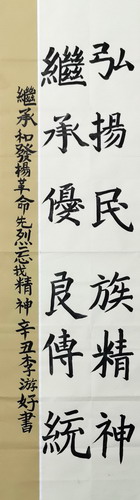 弘揚民族精神
繼承優良傳統
繼承和發揚革命先烈忘我精神辛丑李游好書